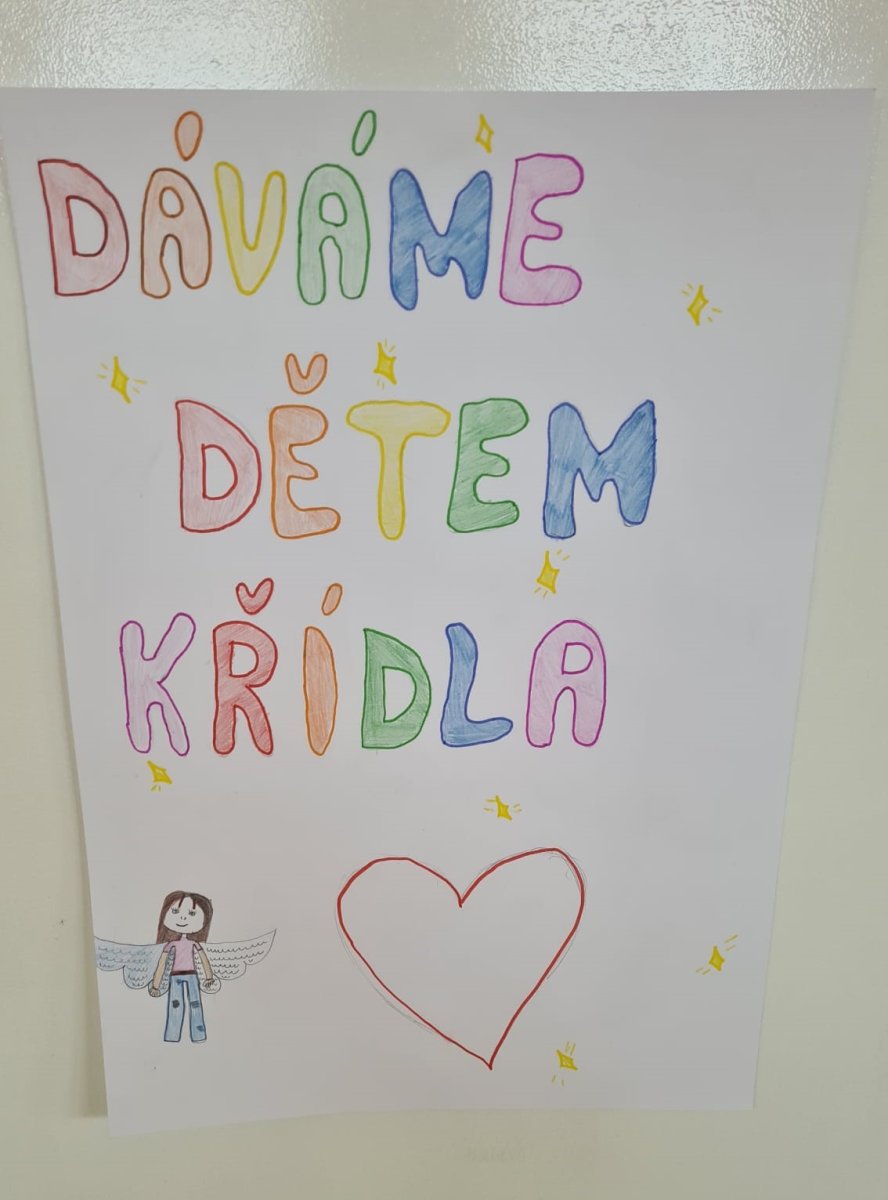 DÁVÁME
DĚTEM
KŘÍDLA